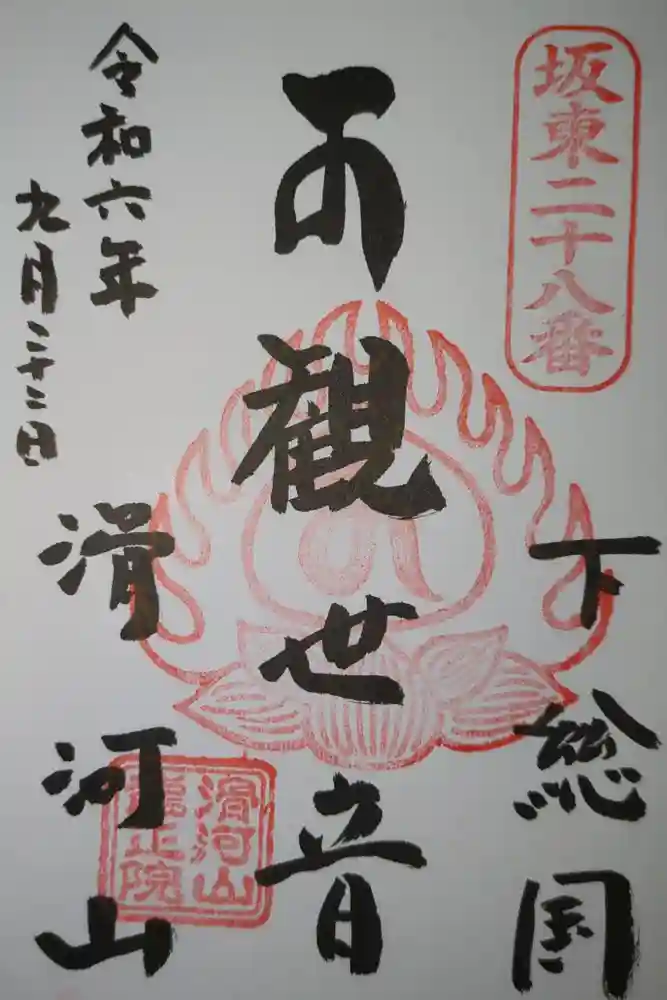 坂東二十八番
下総国
観世音
滑河山
令和六年
九月二十二日
滑河山
龍正院